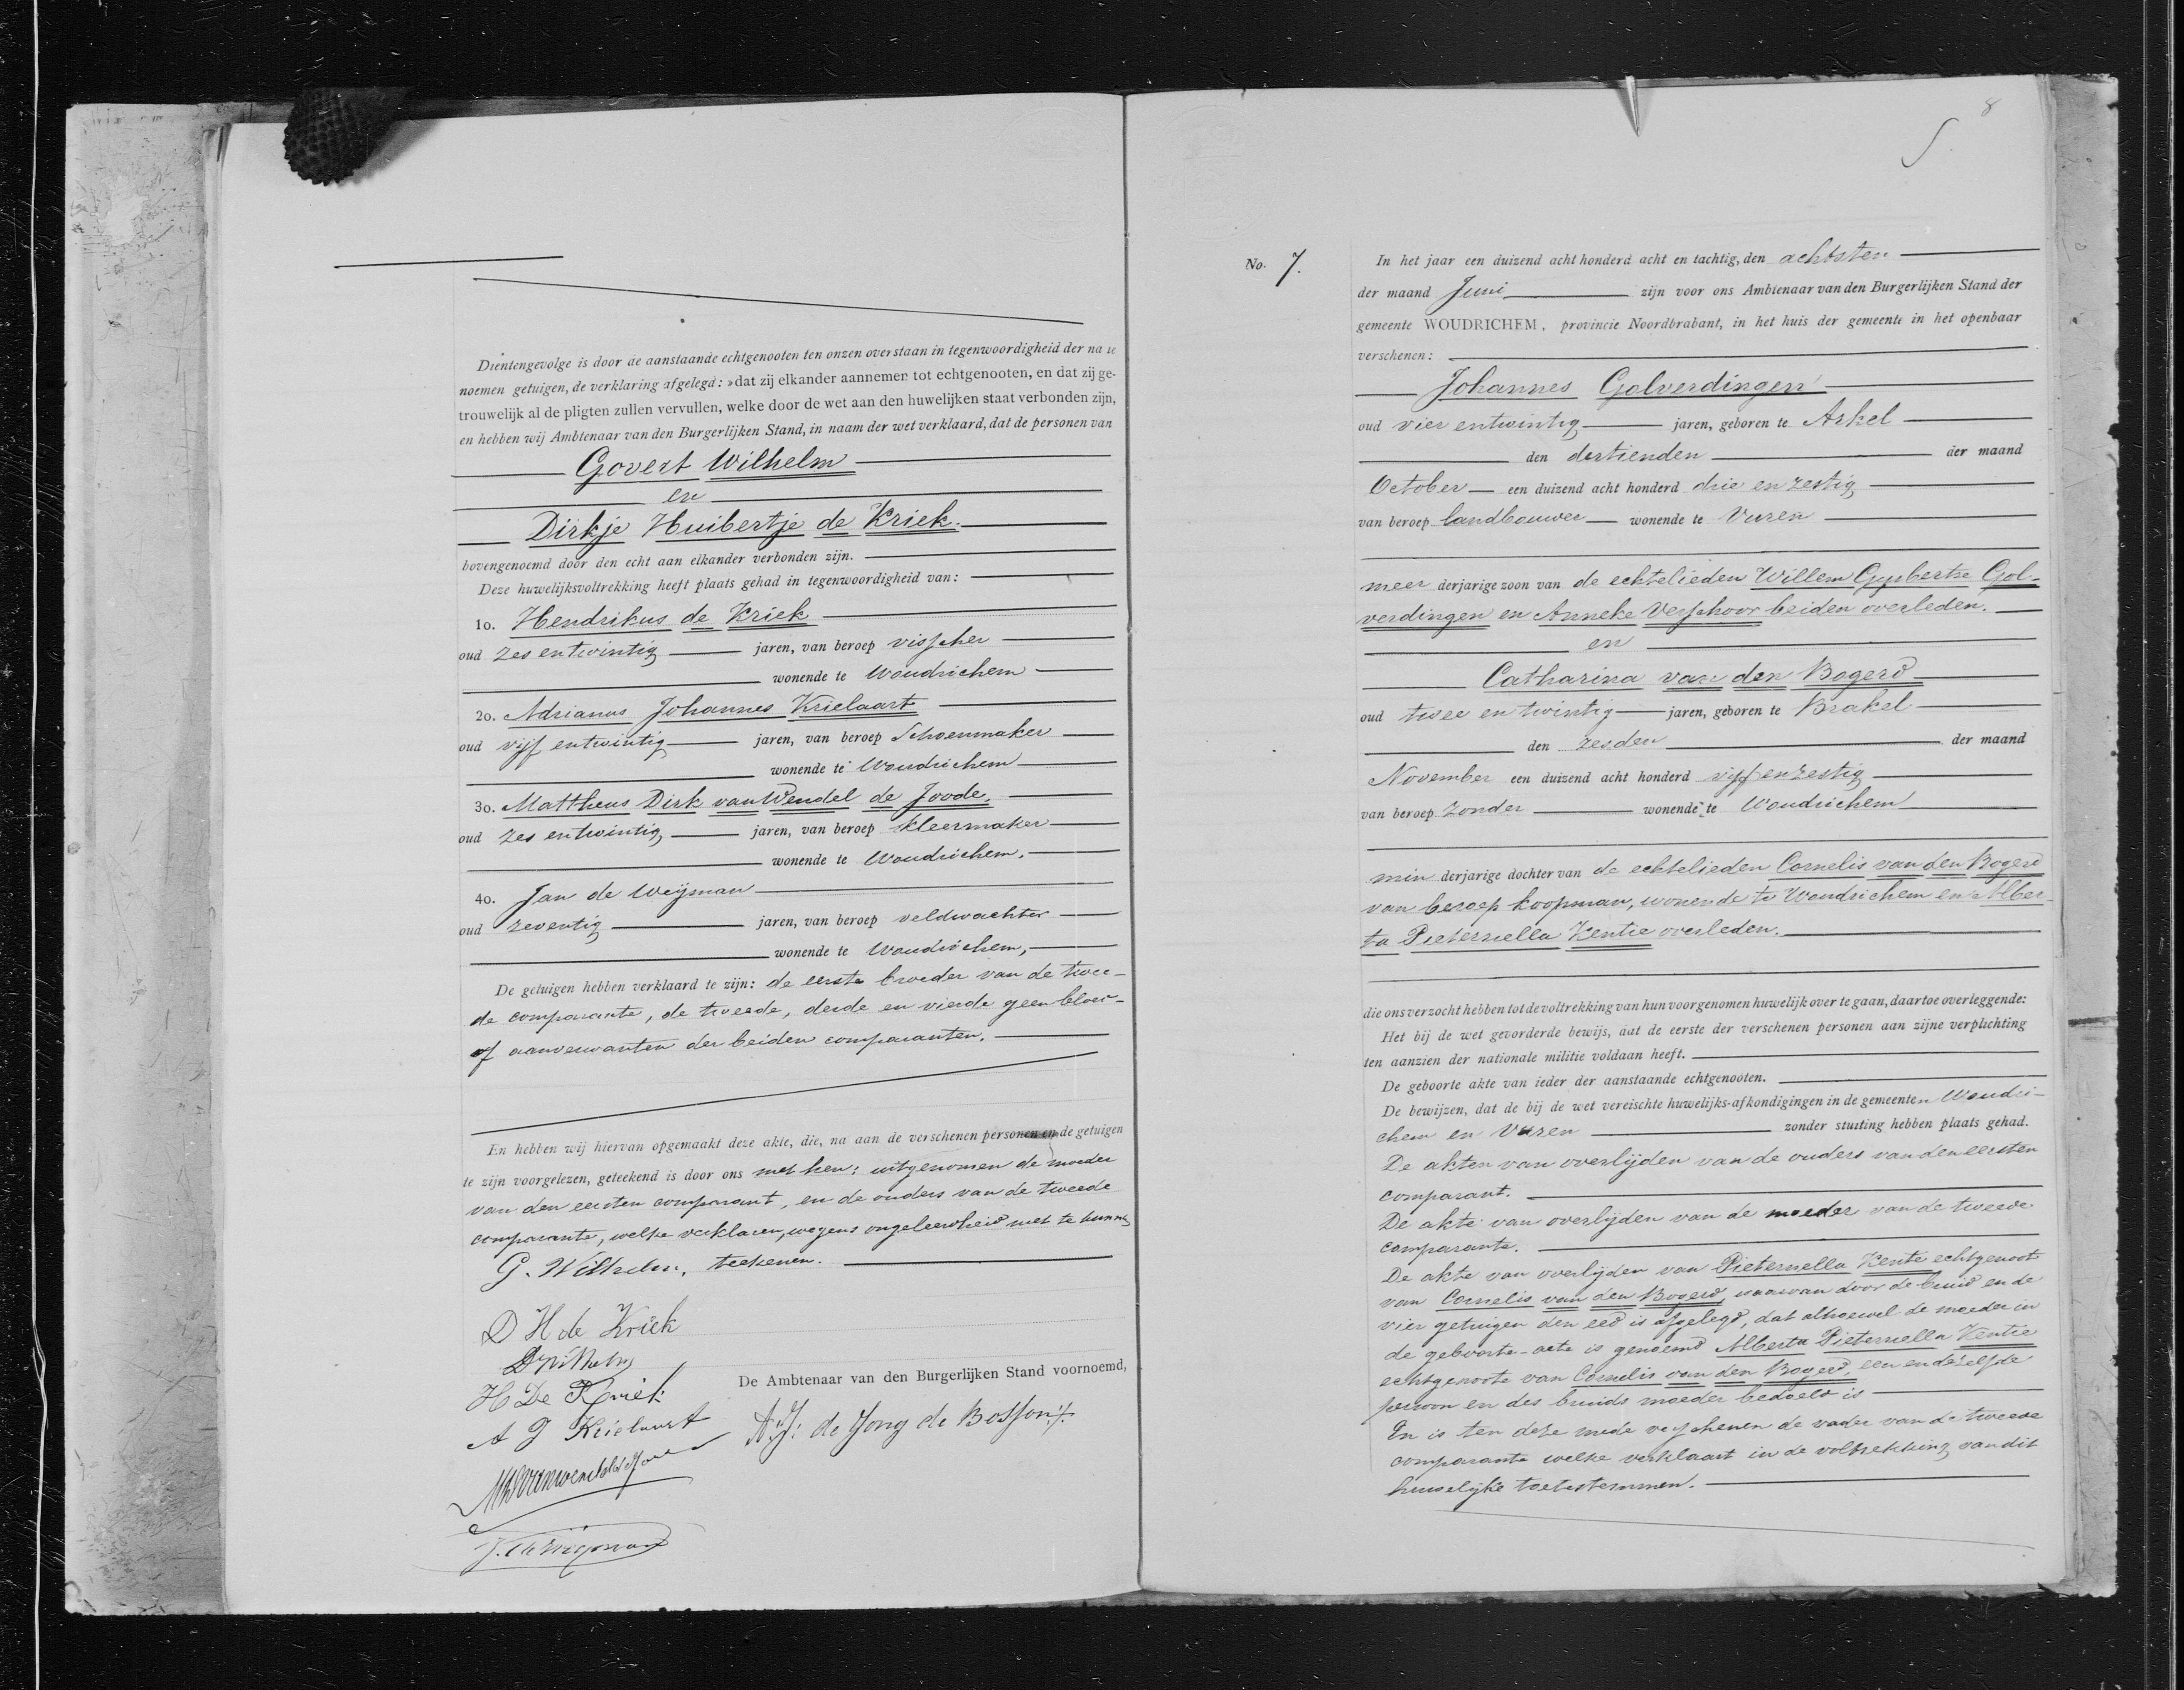 Dientengevolge is door de aanstaande echtgenooten ten onzen overstaan in tegenwoordigheid der na te
noemen getuigen, de verklaring afgelegd: »dat zij elkander aannemen tot echtgenooten, en dat zij ge-
trouwelijk al de pligten zullen vervullen, welke door de wet aan den huwelijken staat verbonden zijn,
en hebben wij Ambtenaar van den Burgerlijken Stand, in naam der wet verklaard, dat de personen van
Govert Wilhelm
en
Dirkje Huibertje de Kriek.
bovengenoemd door den echt aan elkander verbonden zijn.
Deze huwelijksvoltrekking heeft plaats gehad in tegenwoordigheid van:
1o. Hendrikus de Kriek
oud zes en twintig jaren, van beroep visscher
wonende te Woudrichem
2o. Adrianus Johannes Krielaart
oud vijf en twintig jaren, van beroep Schoenmaker
wonende te Woudrichem
3o. Mattheus Dirk van Wendel de Joode,
oud zes en twintig jaren, van beroep kleermaker
wonende te Woudrichem,
4o. Jan de Weijman
oud zeventig jaren, van beroep veldwachter
wonende te Woudrichem,
De getuigen hebben verklaard te zijn: de eerste broeder van de twee-
de comparante, de tweede, derde en vierde geen bloed-
of aanverwanten der beiden comparanten.
En hebben wij hiervan opgemaakt deze akte, die, na aan de verschenen personen en de getuigen
te zijn voorgelezen, geteekend is door ons met hen; uitgenomen de moeder
van den eersten comparant, en de ouders van de tweede
comparante, welke verklaren, wegens ongeleerdheid niet te kunnen
G. Wilhelm, teekenen.
D H de Kriek
D Wilhelm
H De Kriek
De Ambtenaar van den Burgerlijken Stand voornoemd,
A J Krielaart
A.J. de Jong de Bosson
8
No. 7.
In het jaar een duizend acht honderd acht en tachtig, den achtsten
der maand Juni zijn voor ons Ambtenaar van den Burgerlijken Stand der
gemeente WOUDRICHEM, provincie Noordbrabant, in het huis der gemeente in het openbaar
verschenen:
Johannes Golverdingen
oud vier en twintig jaren, geboren te Arkel
den dertienden der maand
October een duizend acht honderd drie en zestig
van beroep landbouwer wonende te Vuren
meer derjarige zoon van de echtelieden Willem Gysbertse Gol-
verdingen en Anneke Verschoor beiden overleden.
en
Catharina van den Bogerd
oud twee en twintig jaren, geboren te Brakel
den zesden der maand
November een duizend acht honderd vijf en zestig
van beroep zonder wonende te Woudrichem
min derjarige dochter van de echtelieden Cornelis van den Bogerd
van beroep koopman, wonende te Woudrichem en Alber-
ta Pieternella Kentie overleden.
die ons verzocht hebben tot de voltrekking van hun voorgenomen huwelijk over te gaan, daartoe overleggende:
Het bij de wet gevorderde bewijs, dat de eerste der verschenen personen aan zijne verplichting
ten aanzien der nationale militie voldaan heeft.
De geboorte akte van ieder der aanstaande echtgenooten.
De bewijzen, dat de bij de wet vereischte huwelijks-afkondigingen in de gemeenten Woudri-
chem en Vuren zonder stuiting hebben plaats gehad.
De akten van overlijden van de ouders van den eersten
comparant.
De akte van overlijden van de moeder van de tweede
comparante.
De akte van overlijden van Pieternella Kentie echtgenoot
van Cornelis van den Bogerd, waarvan door de bruid en de
vier getuigen den eed is afgelegd, dat alhoewel de moeder in
de geboorte-acte is genoemd Alberta Pieternella Kentie
echtgenoote van Cornelis van den Bogerd, een en dezelfde
persoon en des bruids moeder bedoeld is
En is ten deze mede verschenen de vader van de tweede
comparante welke verklaart in de voltrekking van dit
huwelijke toetestemmen.